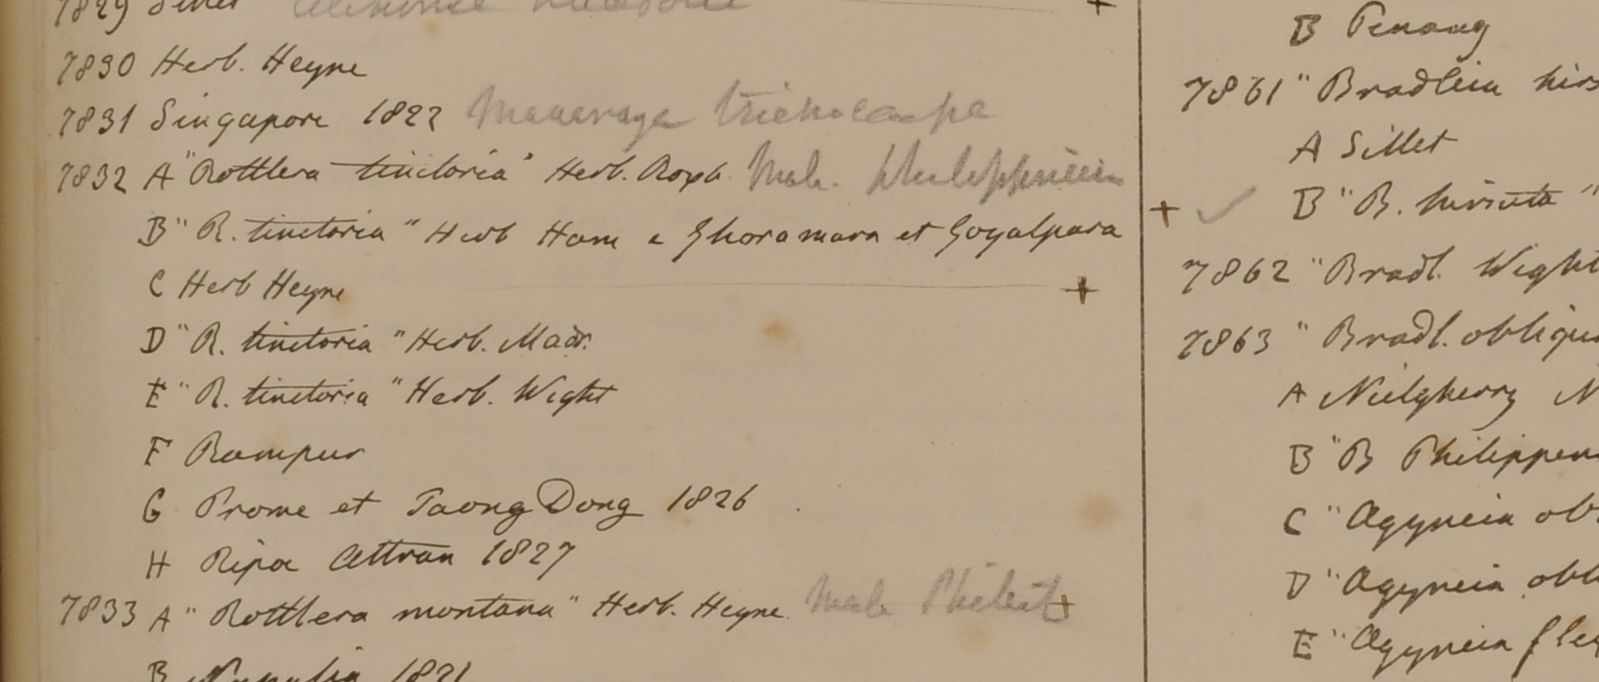 7829 Sillet
7830 Herb. Heyne
7831 Singapore 1822
7832 A "Rottlera tinctoria" Herb. Roxb.
B "R. tinctoria" Herb Ham e Ghoramara et Goyalpara
C Herb Heyne +
D "R. tinctoria" Herb. Madr.
E "R. tinctoria" Herb. Wight
F Rampur
G Prome et Taong Dong 1826
H Ripa Attran 1827
7833 A "Rottlera montana" Herb. Heyne +
B Napalia 1821
B Penang
7861 "Bradleia hirs
A Sillet
+ ✓ B "B. hirsuta"
7862 "Bradl. Wight
7863 "Bradl. obliqu
A Neelgherry N
B "B Philippen
C "Agyneia ob
D "Agyneia obl
E "Agyneia flex